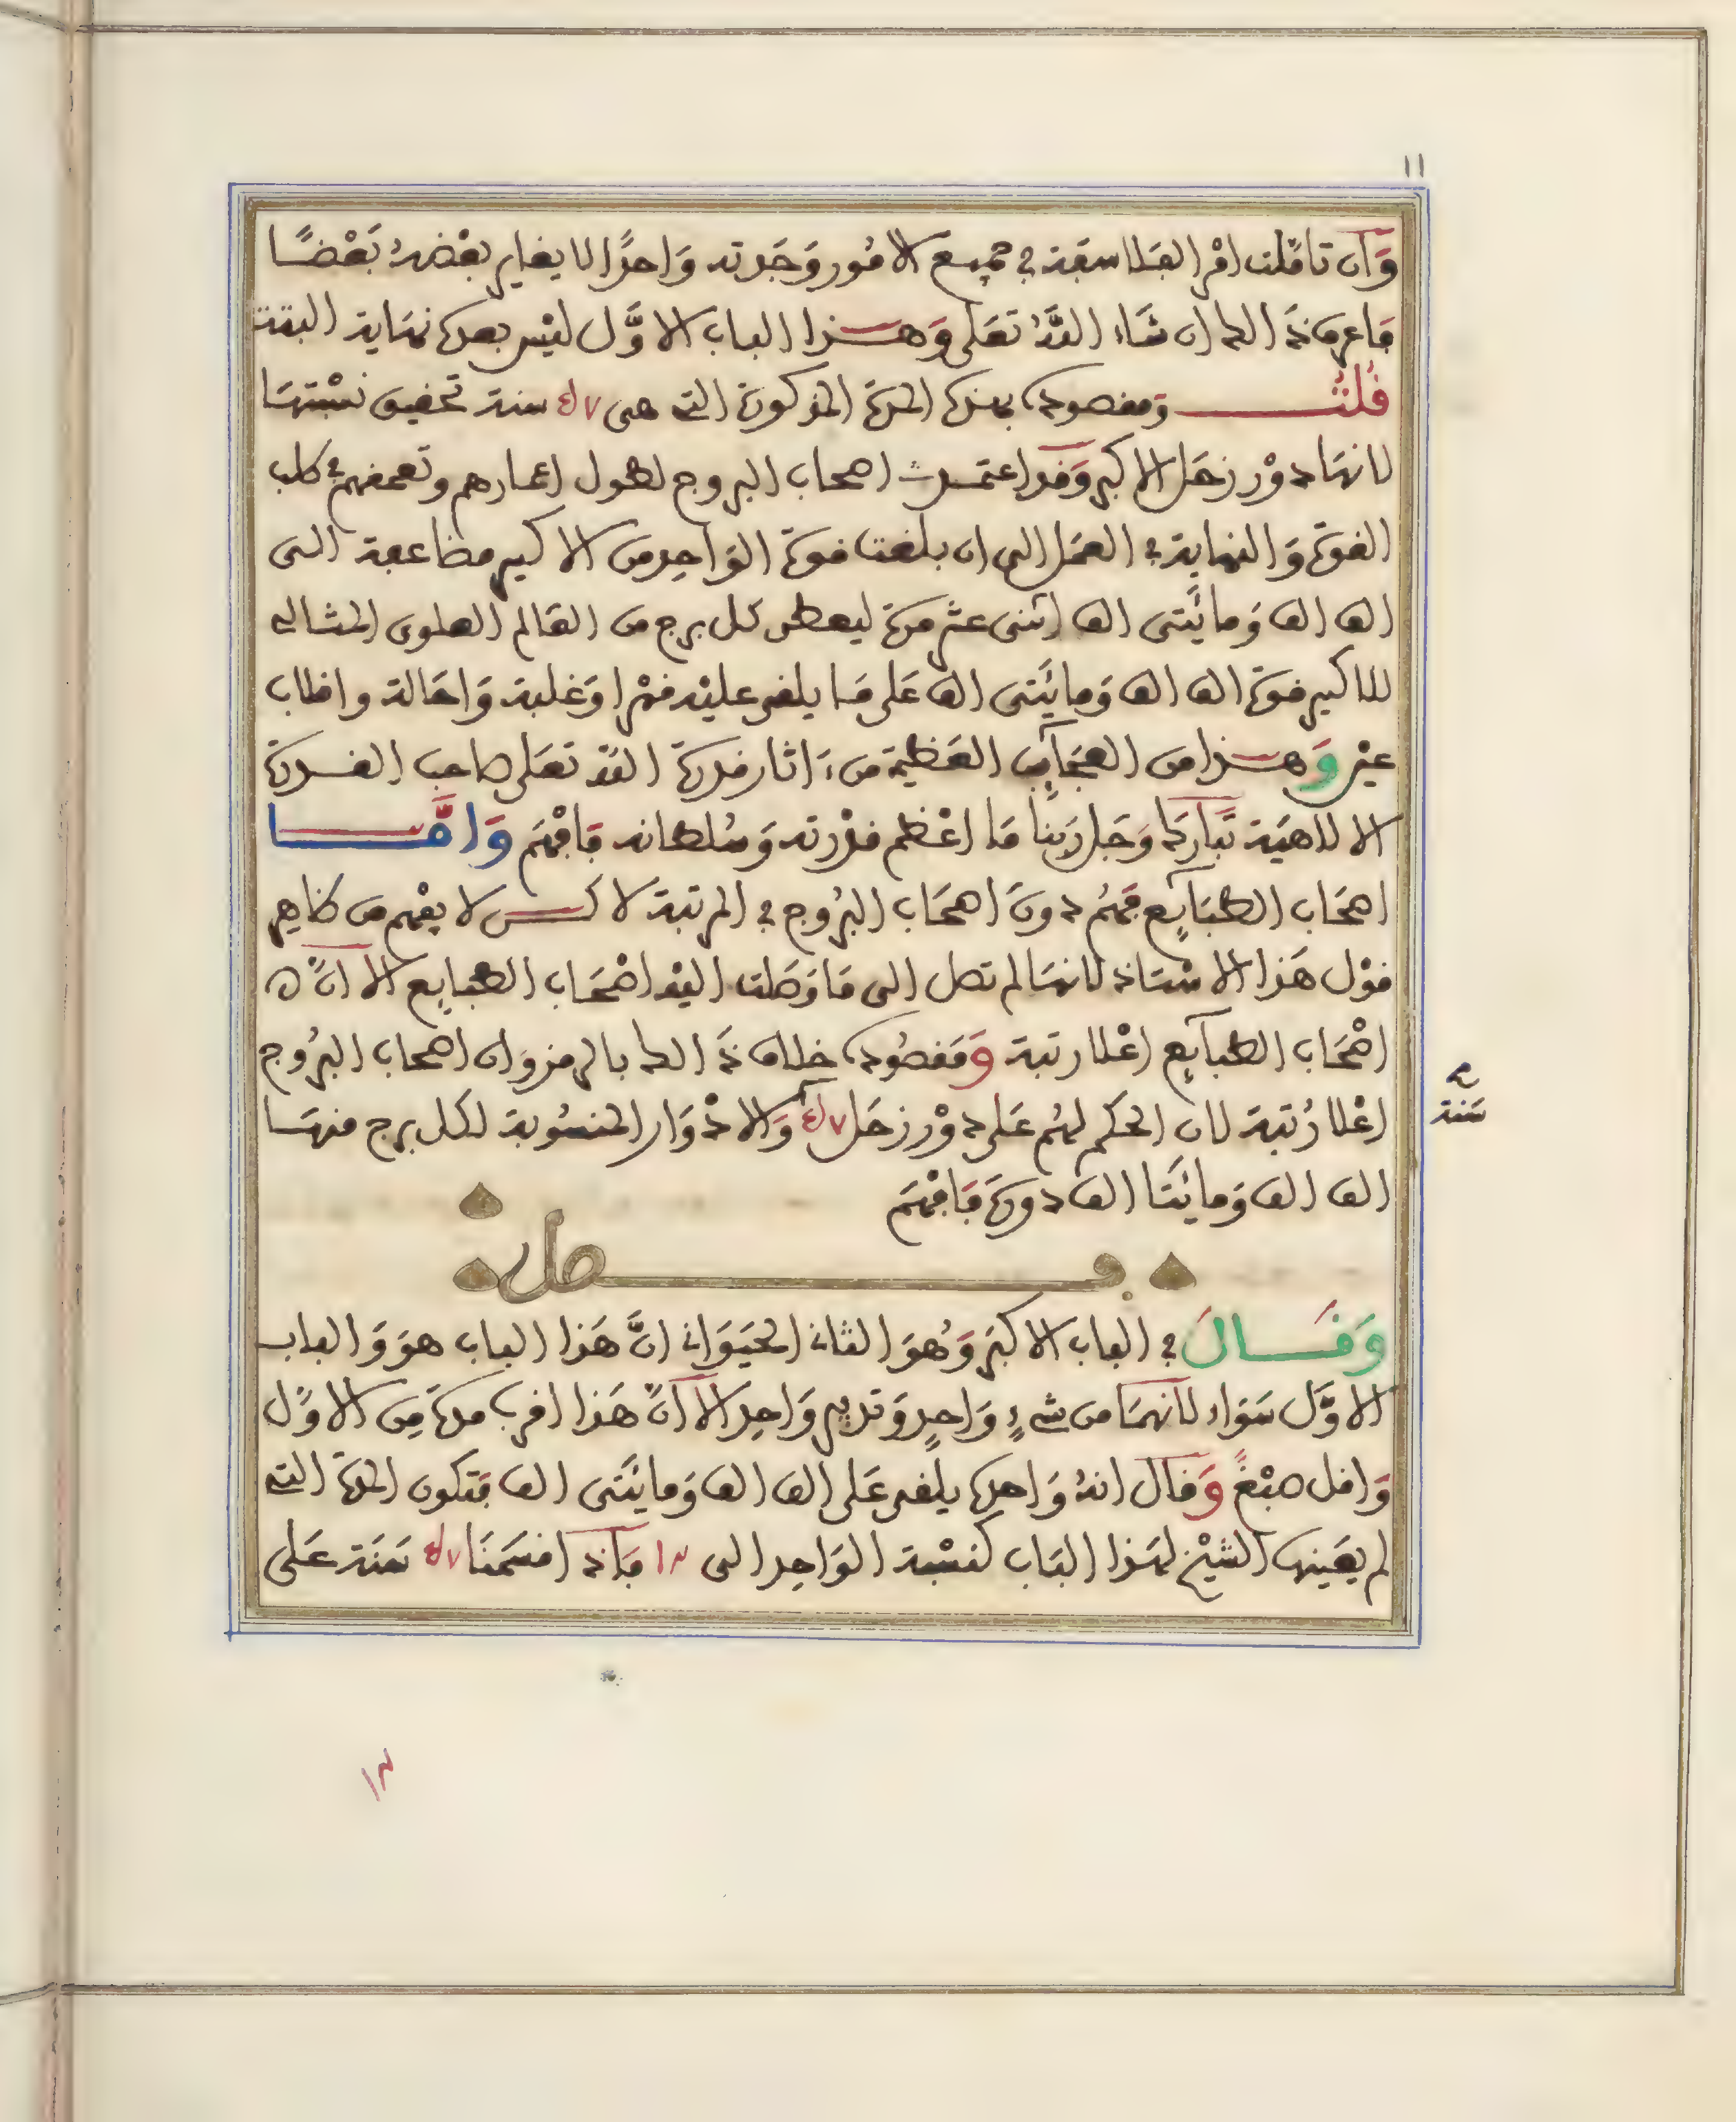 ١١
وَان تاملت امْر الفلاسفة في جميع الامُور وَجَدته وَاحدًا لا يغاير بعْضهُ بَعْضًا
فاعرف ذَالك ان شاء اللهُ تعَلى وَهذا الباب الاوَّل ليْس بعدَه نهَاية البتة
قُلتُ وَمقصوده بهذه المدة المذكورة التي هى سنة تحقيق نسْبتهَا
لانهَا دوْر زحَل الاكبر وَقد اعتمدت اصحاب البروج لطول اعمارهم وتعمقهم في طلب
القوة وَالنهاية في العمَل الى ان بلغت قوة الوَاحِد من الاكسير مضاعفة الى
الف الف وَمائَتى الف اثنى عشر مرة ليعطى كل برج من العَالم العلوى المثالي
للاكسير قوة الف الف وَمائَتى الف عَلى مَا يلقى عليْه قهْرا وَغلبة وَاحَالة واقلاب
عيْن وَهذا من العجَآيِب العَظيمة من ءَاثار قدرة الله تعَلى صاحب القدرة
الالاهيَة تَبَارَك وَجَل رَبنا مَا اعْظم قدْرته وَسُلطانه فَافْهَم وَامَّا
اصحَاب الطبَآيِع فَهُم دونَ اصحَاب البُرُوج في المرتبة لاكن لا يفْهم من ظاهِر
قوْل هَذا الاسْتاذ لانهَا لم تصل الى مَا وَصَلت اليْه اصْحَاب الطبايع الا انَّ
اصْحَاب الطبآيِع اعْلا رتبة وَمَقصُوده خلاف ذَالك بالرمز وَان اصحاب البرُوج
اعْلا رُتبة لان الحكم لهُم عَلى دوْر زحَل وَالادْوَار المنسُوبة لكل برج منهَا
سَنة
الف الف وَمائَتَا الف دورَة فَافْهَم
فصل
وَقَالَ في الباب الاكبَر وَهُوَ الثاني الحيَوَاني انَّ هَذا الباب هوَ وَالباب
الاوَّل سَوَاء لانهمَا من شيءٍ وَاحِدٍ وَتدبير وَاحِد الاَّ انَّ هَذا اقرب مدة مِن الاوَّل
وَاقل صبْغً وَقال انهُ وَاحِده يلقى عَلى الف الف وَمائَتى الف فتكون المدة التي
لم يعَينها الشيْخ لهَذا البَاب كنسْبة الوَاحِد الى فَاذَا اقسَمنَا سَنَة عَلى